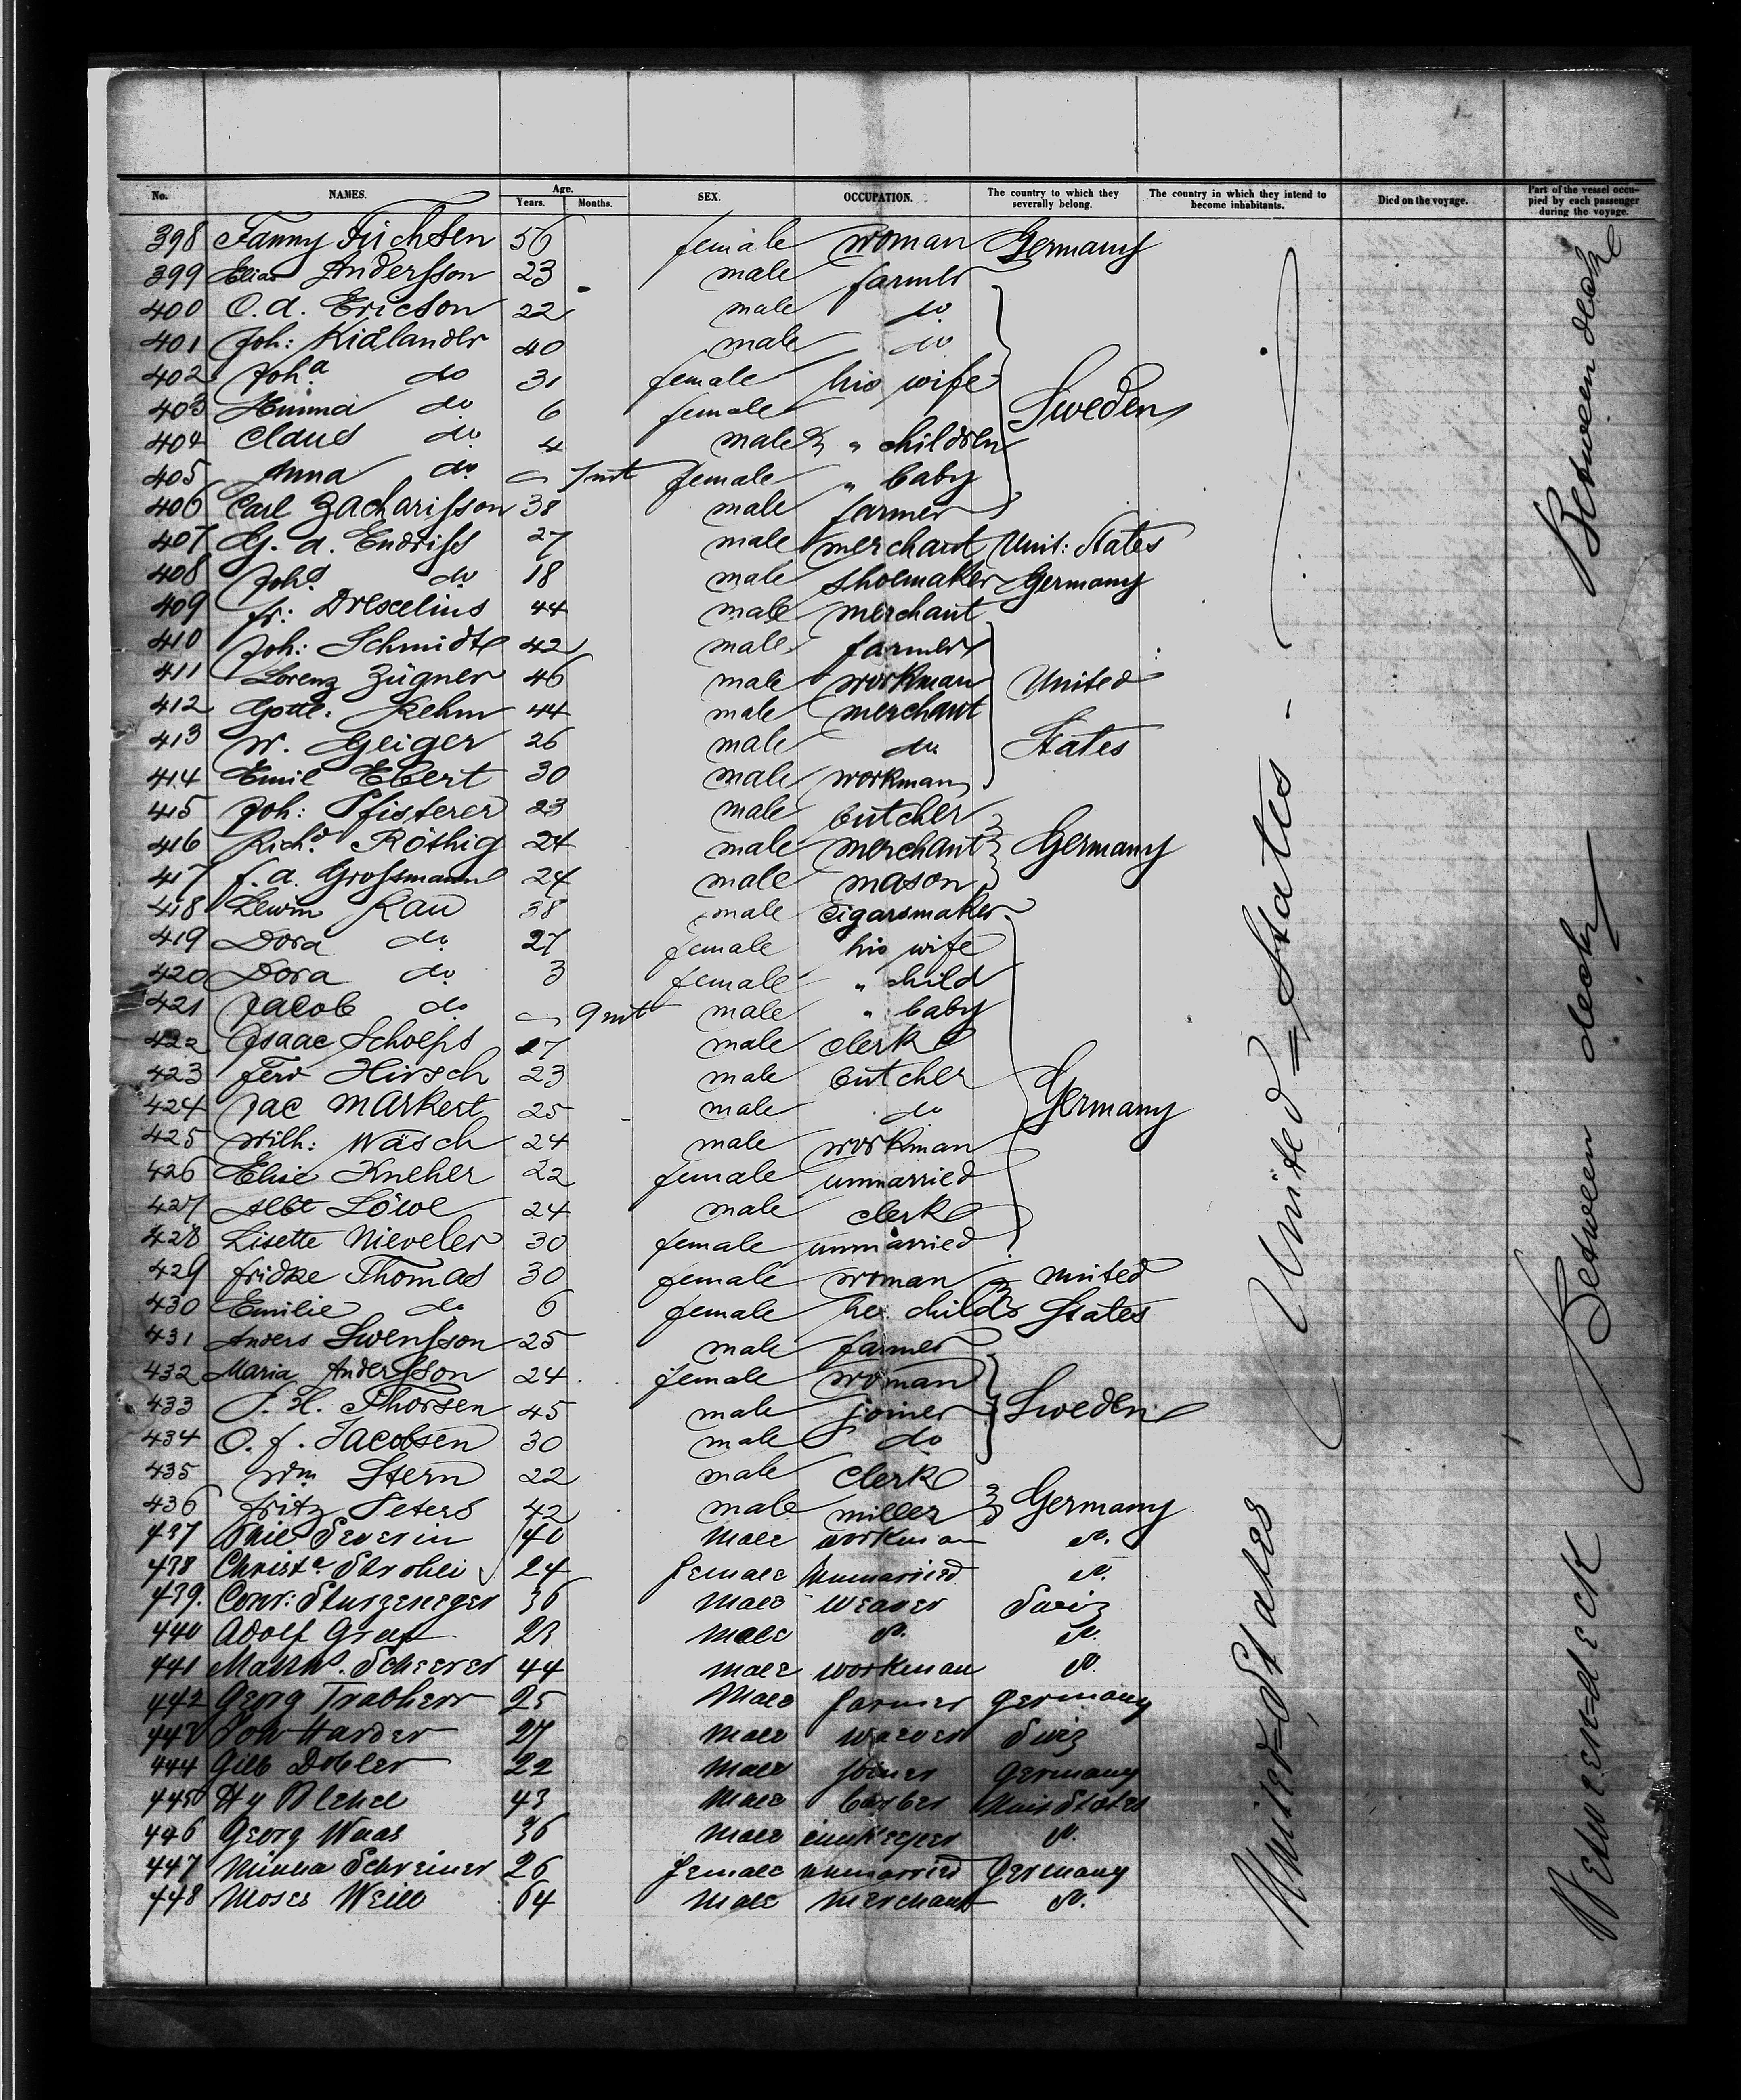 No. NAMES. Age. Years. Months. SEX. OCCUPATION. The country to which they severally belong. The country in which they intend to become inhabitants. Died on the voyage. Part of the vessel occupied by each passenger during the voyage.
398 Fanny Fuchsen 56 female woman Germany
399 Elias Andersson 23 male farmer
400 O. A. Ericson 22 male do
401 Joh: Kidlander 40 male do
402 Joh.a do 31 female his wife
403 Emma do 6 female Sweden
404 Claus do 4 male " children
405 Anna do female " baby
406 Carl Zacharisson 38 male farmer
407 G. A. Endriss 27 male merchant Unit: States
408 Joh.s do 18 male shoemaker Germany
409 Fr: Drescelius 44 male merchant
410 Joh: Schmidt 42 male farmer
411 Lorenz Zügner 46 male workman United
412 Gottl. Rehm 44 male merchant
413 W. Geiger 26 male do States
414 Emil Ebert 30 male workman
415 Joh: Pfisterer 23 male butcher
416 Rich.d Röthig 24 male merchant Germany
417 F. A. Grossmann 24 male mason
418 Lewin Rau 38 male cigarsmaker
419 Dora do 27 female his wife
420 Dora do 3 female " child
421 Jacob do 9 mt male " baby
422 Isaac Schoeps 17 male clerk
423 Ferd Hirsch 23 male butcher
424 Jac Markert 25 male do Germany
425 Wilh: Wäsch 24 male workman
426 Elise Kneher 22 female unmarried
427 Albt Löwe 24 male clerk
428 Lisette Nieveler 30 female unmarried
429 Fridke Thomas 30 female woman United
430 Emilie do 6 female her child States
431 Anders Swensson 25 male farmer
432 Maria Andersson 24 female woman
433 J. H. Thorsen 45 male joiner Sweden
434 O. F. Jacobsen 30 male do
435 Wm Stern 22 male clerk
436 Fritz Peters 42 male miller Germany
437 Severin 40 male workman do.
438 Christ.e Strohli 24 female unmarried do.
439. Conr: Sturzeneger 36 male weaver Swiz
440 Adolf Graf 23 male do. do.
441 Matths. Scherrer 44 male workman do.
442 Georg Trabherr 25 male farmer Germany
443 Joh Harder 27 male weaver Swiz
444 Gilb Dobler 22 male joiner Germany
445 Hy 43 male barber Unit States
446 Georg Waas 36 male innkeeper do.
447 Minna Schreiner 26 female unmarried Germany
448 Moses Weill 64 male merchant do.
United = States
United = States
Between decke
Between deck
Between = deck